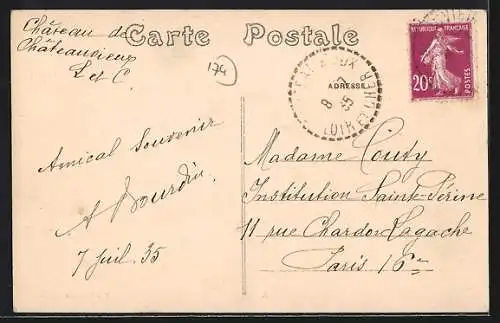 Château de
Châteauvieux
L et C
Carte Postale
174
RÉPUBLIQUE FRANÇAISE
20c
POSTES
ADRESSE
8
35
LOIR ET CHER
Amical Souvenir
A Bourdin
7 Juil. 35
Madame Couty
Institution Sainte-Périne
11 rue Chardon Lagache
Paris 16e